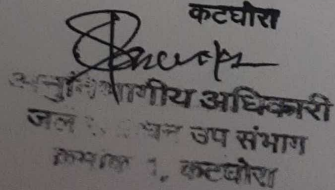 कटघोरा
अनुविभागीय अधिकारी
जल उप संभाग
क्रमांक 1, कटघोरा